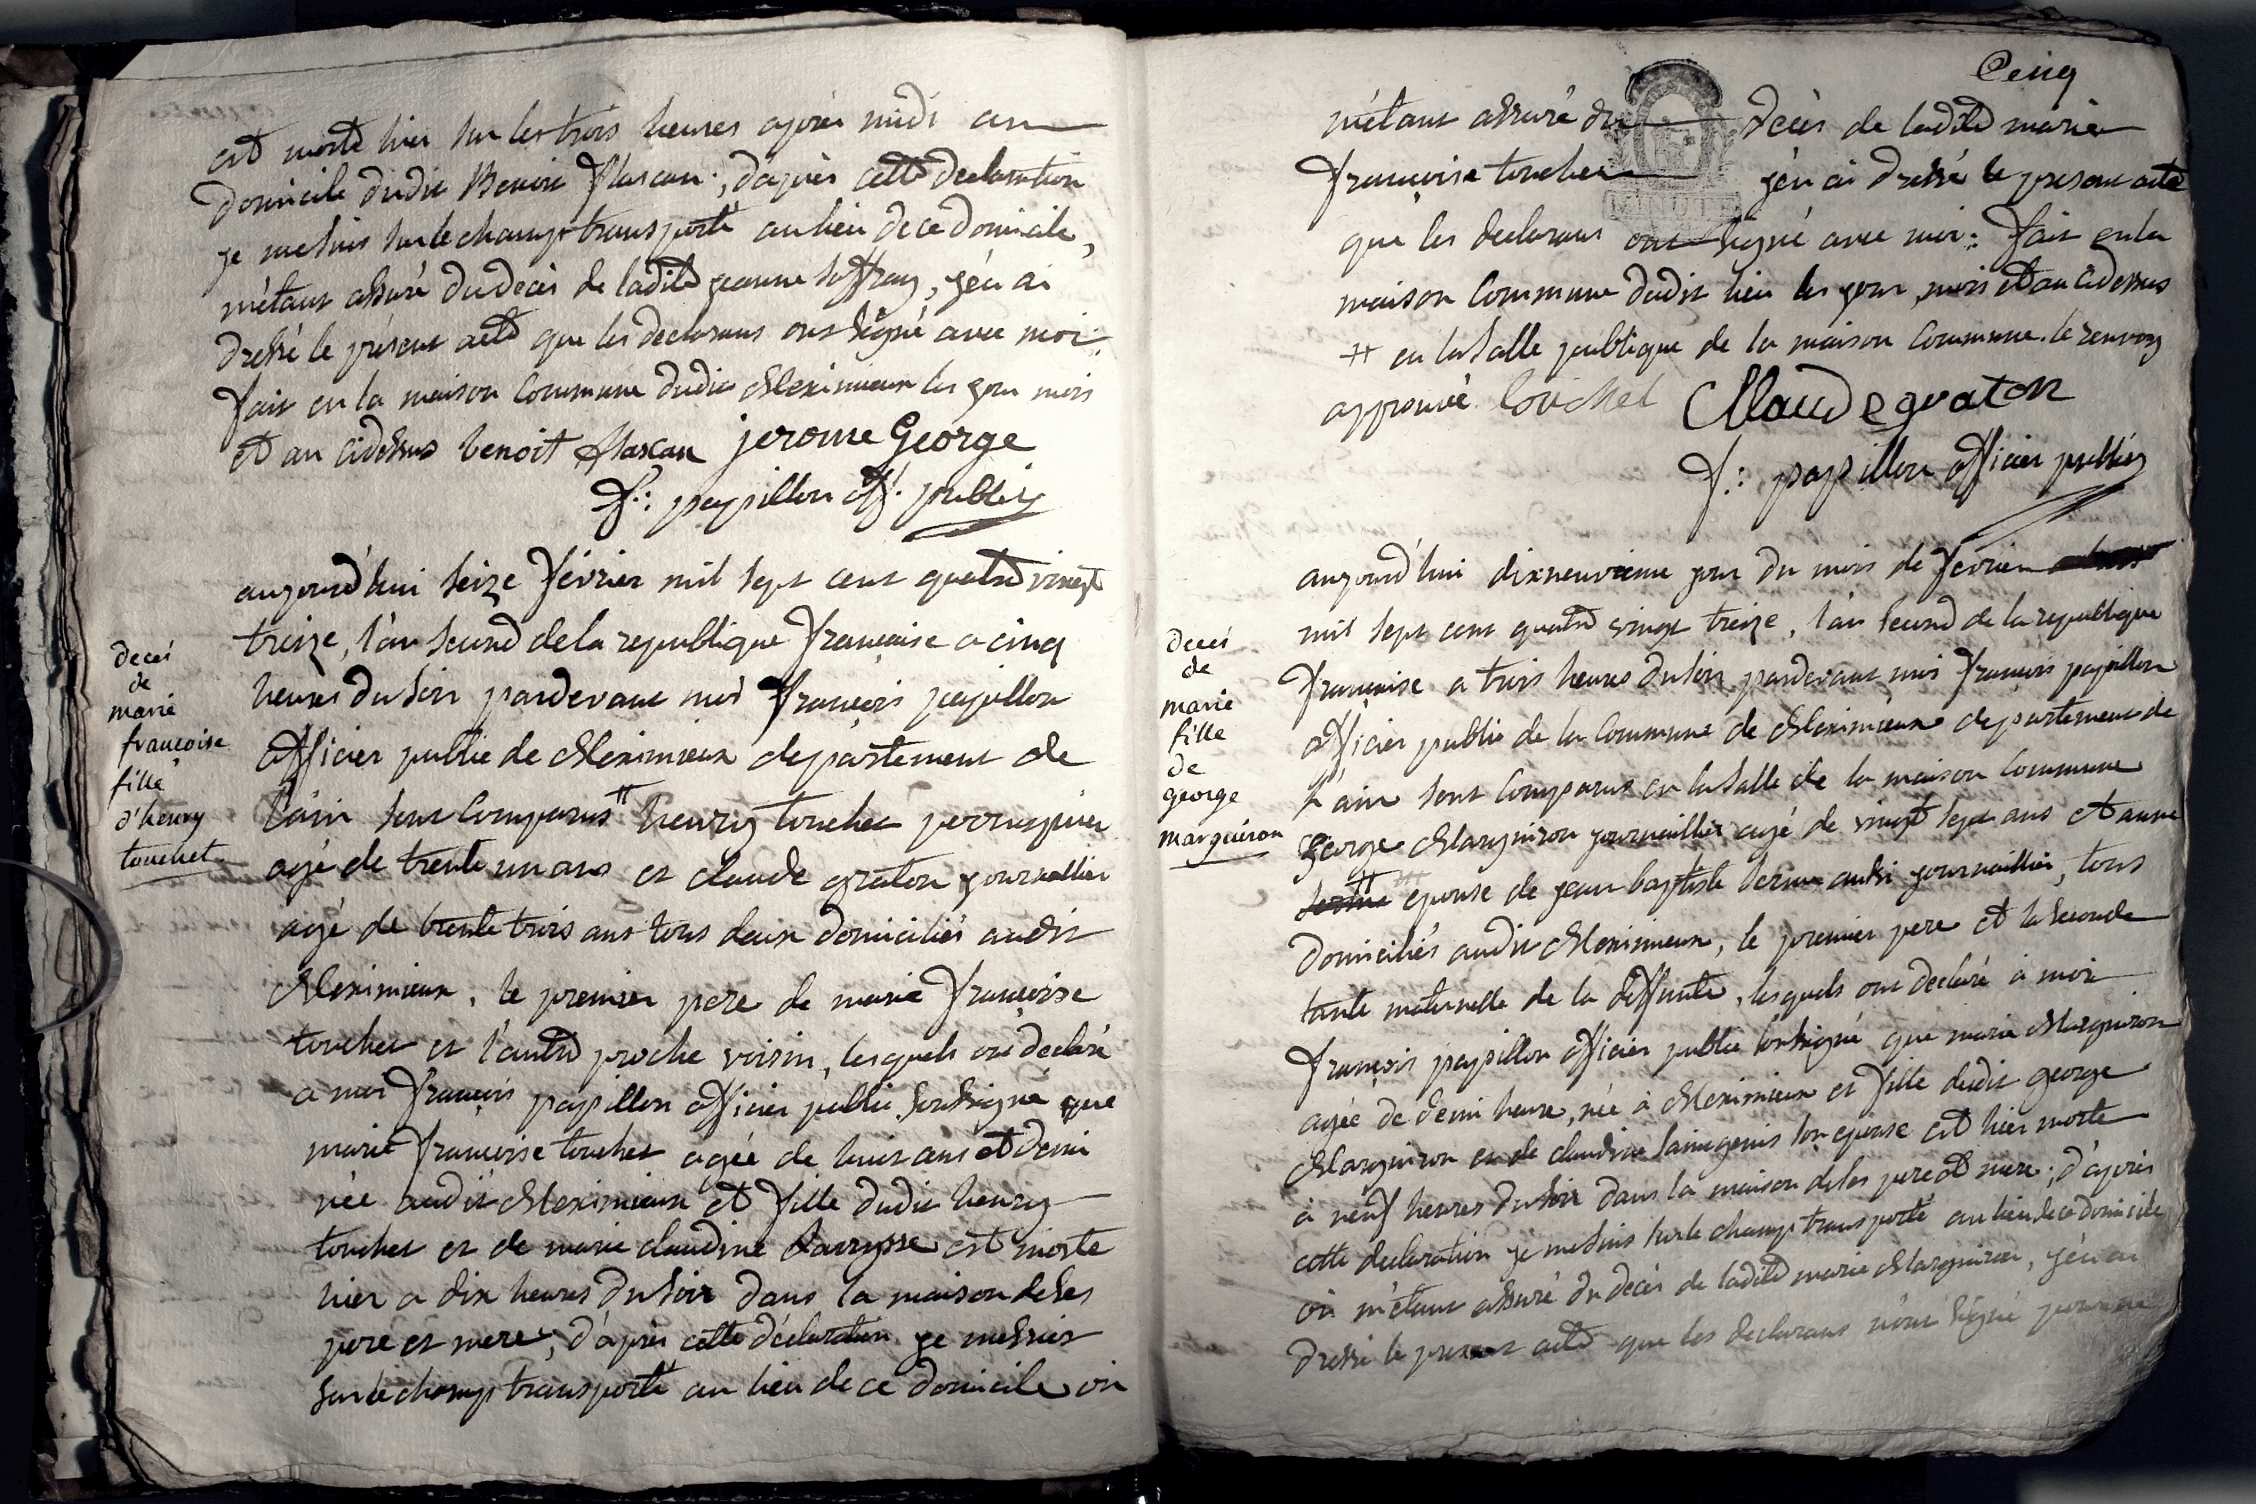 est morte hier sur les trois heures après midi au
domicile dudit Benoit flascan ; d'après cette declaration
je me suis sur le champ transporté au lieu de ce domicile,
m'étant assuré du decès de ladite jeanne soffray, j'en ai
dressé le présent acte que les declarans ont signé avec moi.
fait en la maison Commune dudit Meximieux les jour mois
et an cidessus benoit flascan jerome George
f.: papillon off. public
aujourd'hui seize février mil sept cent quatre vingt
treize, l'an second de la republique française a cinq
heures du soir pardevant moi françois papillon
officier public de Meximieux departement de
l'ain sont Comparus # henry touchet perruquier
agé de trente un ans et claude graton journallier
agé de trente trois ans tous deux domiciliés audit
Meximieux, le premier pere de marie françoise
touchet et l'autre proche voisin, lesquels ont declaré
a moi françois papillon officier public soussigné que
marie françoise touchet agée de huit ans et demi
née audit Meximieux et fille dudit henry
touchet et de marie claudine est morte
hier a dix heures du soir dans la maison de ses
pere et mere ; d'après cette déclaration je me suis
sur le champ transporté au lieu de ce domicile où
decés
de
marie
françoise
fille
d'henry
touchet
Cinq
m'étant assuré du decès de ladite marie
françoise touchet j'en ai dressé le présent acte
que les declarans ont signé avec moi : fait en la
maison Commune dudit lieu les jour, mois et an cidessus
# en la salle publique de la maison Commune. le renvoy
approuvé touchet Claude graton
f.: papillon officier public
aujourd'hui dixneuvieme jour du mois de février
mil sept cent quatre vingt treize, l'an second de la republique
française a trois heures du soir pardevant moi françois papillon
officier public de la Commune de Meximieux departement de
l'ain sont Comparus en la salle de la maison Commune
George Marguiron journaillier agé de vingt sept ans et anne
epouse de jean baptiste aussi journaillier, tous
domiciliés audit Meximieux, le premier pere et la seconde
tante maternelle de la deffunte, lesquels ont declaré à moi
françois papillon officier public soussigné que marie Marguiron
agée de demi heure, née à Meximieux et fille dudit george
Marguiron et de claudine saingenis son epouse est hier morte
a neuf heures du soir dans la maison de ses pere et mere ; d'après
cette declaration je me suis sur le champ transporté au lieu de ce domicile
où m'étant assuré du decès de ladite marie Marguiron, j'en ai
dressé le present acte que les declarans n'ont signé pour ne
decés
de
marie
fille
de
george
marguiron